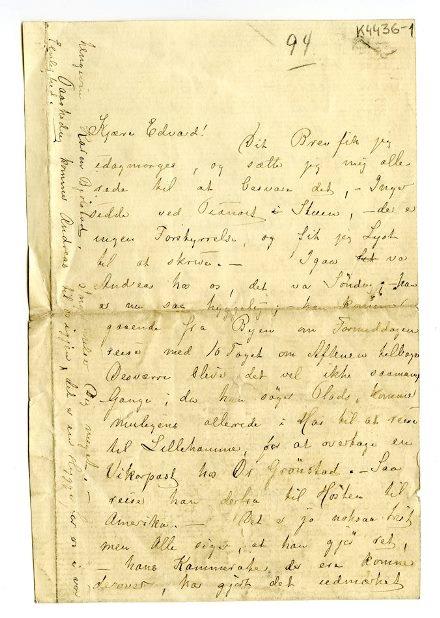 K4436-1
94
Kjære Edvard!
Dit Brev fik jeg
idagmorges, og sætte jeg mig alle-
rede til at besvare det, - Inger
sidder ved Pianoet i Stuen, - der er
ingen Forstyrrelse, og fik jeg Lyst
til at skrive. - Igaar var
Andreas hos os, det var Søndag; han
er nu saa hyggelig; han kommer
gaaende fra Byen om Formiddagen
reiser med Toget om Aftenen tilbage
Desværre blive det vel ikke saamange
Gange, da han søger Plads, kommer
muligens allerede i Mai til at reise
til Lillehammer, for at overtage en
Vikarpost hos Dr Grønstad. - Saa
reiser han derfra til Høsten til
Amerika. - Det er jo noksaa trist
men Alle siger, at han gjør ret,
- hans Kammerater, der ere komne
derover, har gjort det udmærket
Karen Bjølstad.
Leilighed.
Paaskedag kommer Andreas til os igjen, det er